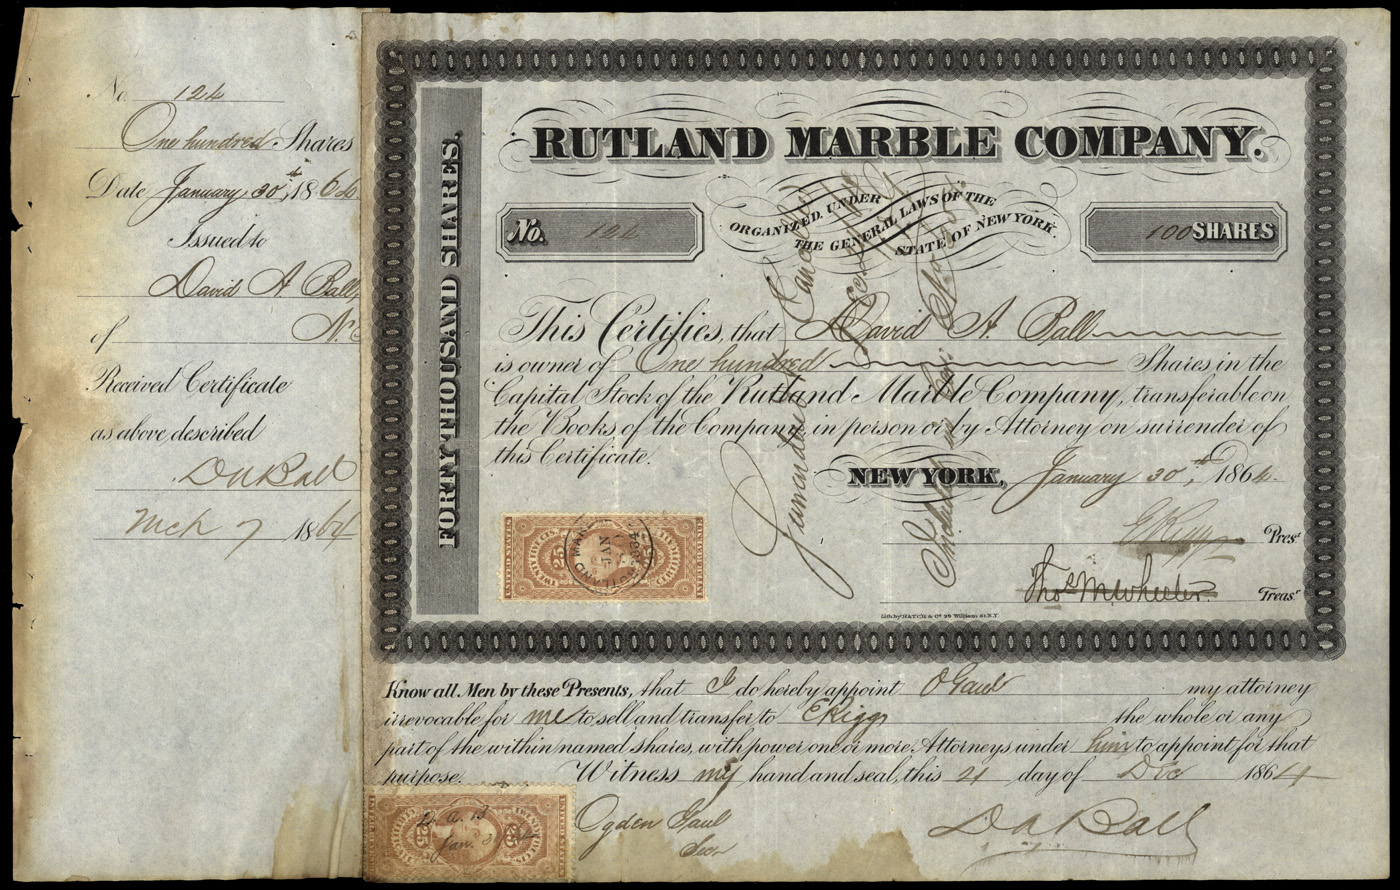 No. 124
One hundred Shares
Date January 30th, 1864
Issued to
David A. Ball
of N.
Received Certificate
as above described
D A Ball
Mch 7 1864
FORTY THOUSAND SHARES.
RUTLAND MARBLE COMPANY.
ORGANIZED UNDER
THE GENERAL LAWS OF THE
STATE OF NEW YORK.
No. 124
100 SHARES
This Certifies, that David A. Ball
is owner of One hundred Shares in the
Capital Stock of the Rutland Marble Company, transferable on
the Books of the Company, in person or by Attorney on surrender of
this Certificate.
NEW YORK, January 30th, 1864.
E Riggs Prest.
Thos M. Wheeler. Treasr.
Lith. by HATCH & Co. 29 William St. N.Y.
Cancelled
UNITED STATES
TWENTY FIVE CTS.
25
INTER. REVENUE
RUTLAND
JAN
Know all Men by these Presents, that I do hereby appoint O Gaul my attorney
irrevocable for me to sell and transfer to E Riggs the whole or any
part of the within named shares, with power one or more Attorneys under him to appoint for that
purpose. Witness my hand and seal, this 21 day of Dec 1864
D. A. B
Jan. 30 64
25
Ogden Gaul
D A Ball